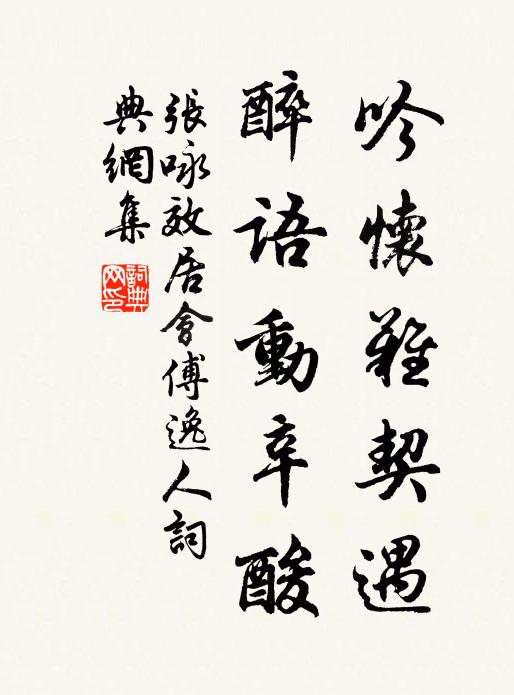 吟懷難契遇
醉語動辛酸
張咏效居會傅逸人詞
典網集
詞典網印